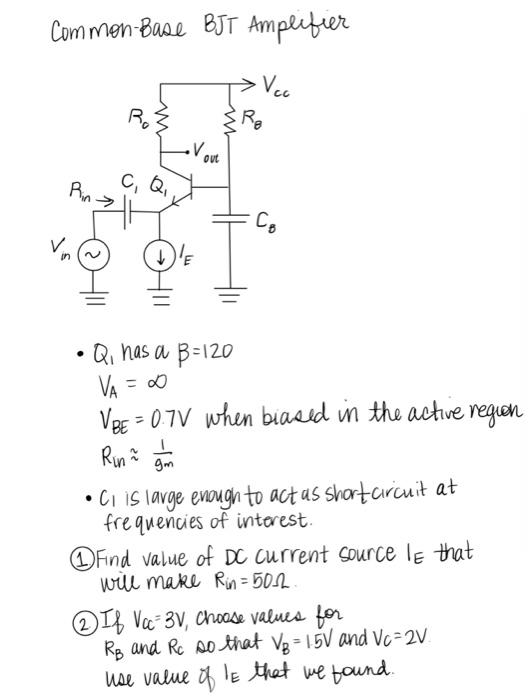 Common-Base BJT Amplifier
Vcc
Rc
RB
Vout
Rin
C1
Q1
CB
Vin
~
IE
• Q1 has a β=120
VA = ∞
VBE = 0.7V when biased in the active region
Rin ≈ 1/gm
• C1 is large enough to act as short circuit at
frequencies of interest.
① Find value of DC current source IE that
will make Rin = 50Ω.
② If Vcc = 3V, choose values for
RB and Rc so that VB = 1.5V and Vc = 2V.
use value of IE that we found.